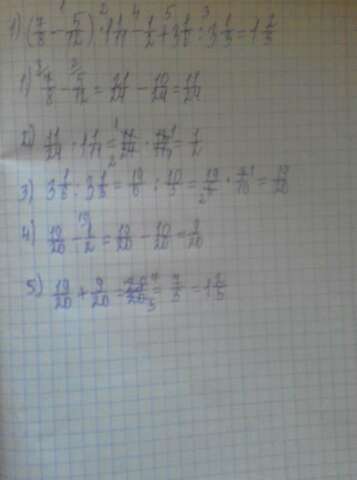 1) (7/8 - 5/12) · 1 1/11 - 1/2 + 3 1/6 : 3 1/3 = 1 2/5
1) 7/8 - 5/12 = 21/24 - 10/24 = 11/24
2) 11/24 · 1 1/11 = 11/24 · 12/11 = 1/2
3) 3 1/6 : 3 1/3 = 19/6 : 10/3 = 19/6 · 3/10 = 19/20
4) 19/20 - 1/2 = 19/20 - 10/20 = 9/20
5) 19/20 + 9/20 = 28/20 = 7/5 = 1 2/5